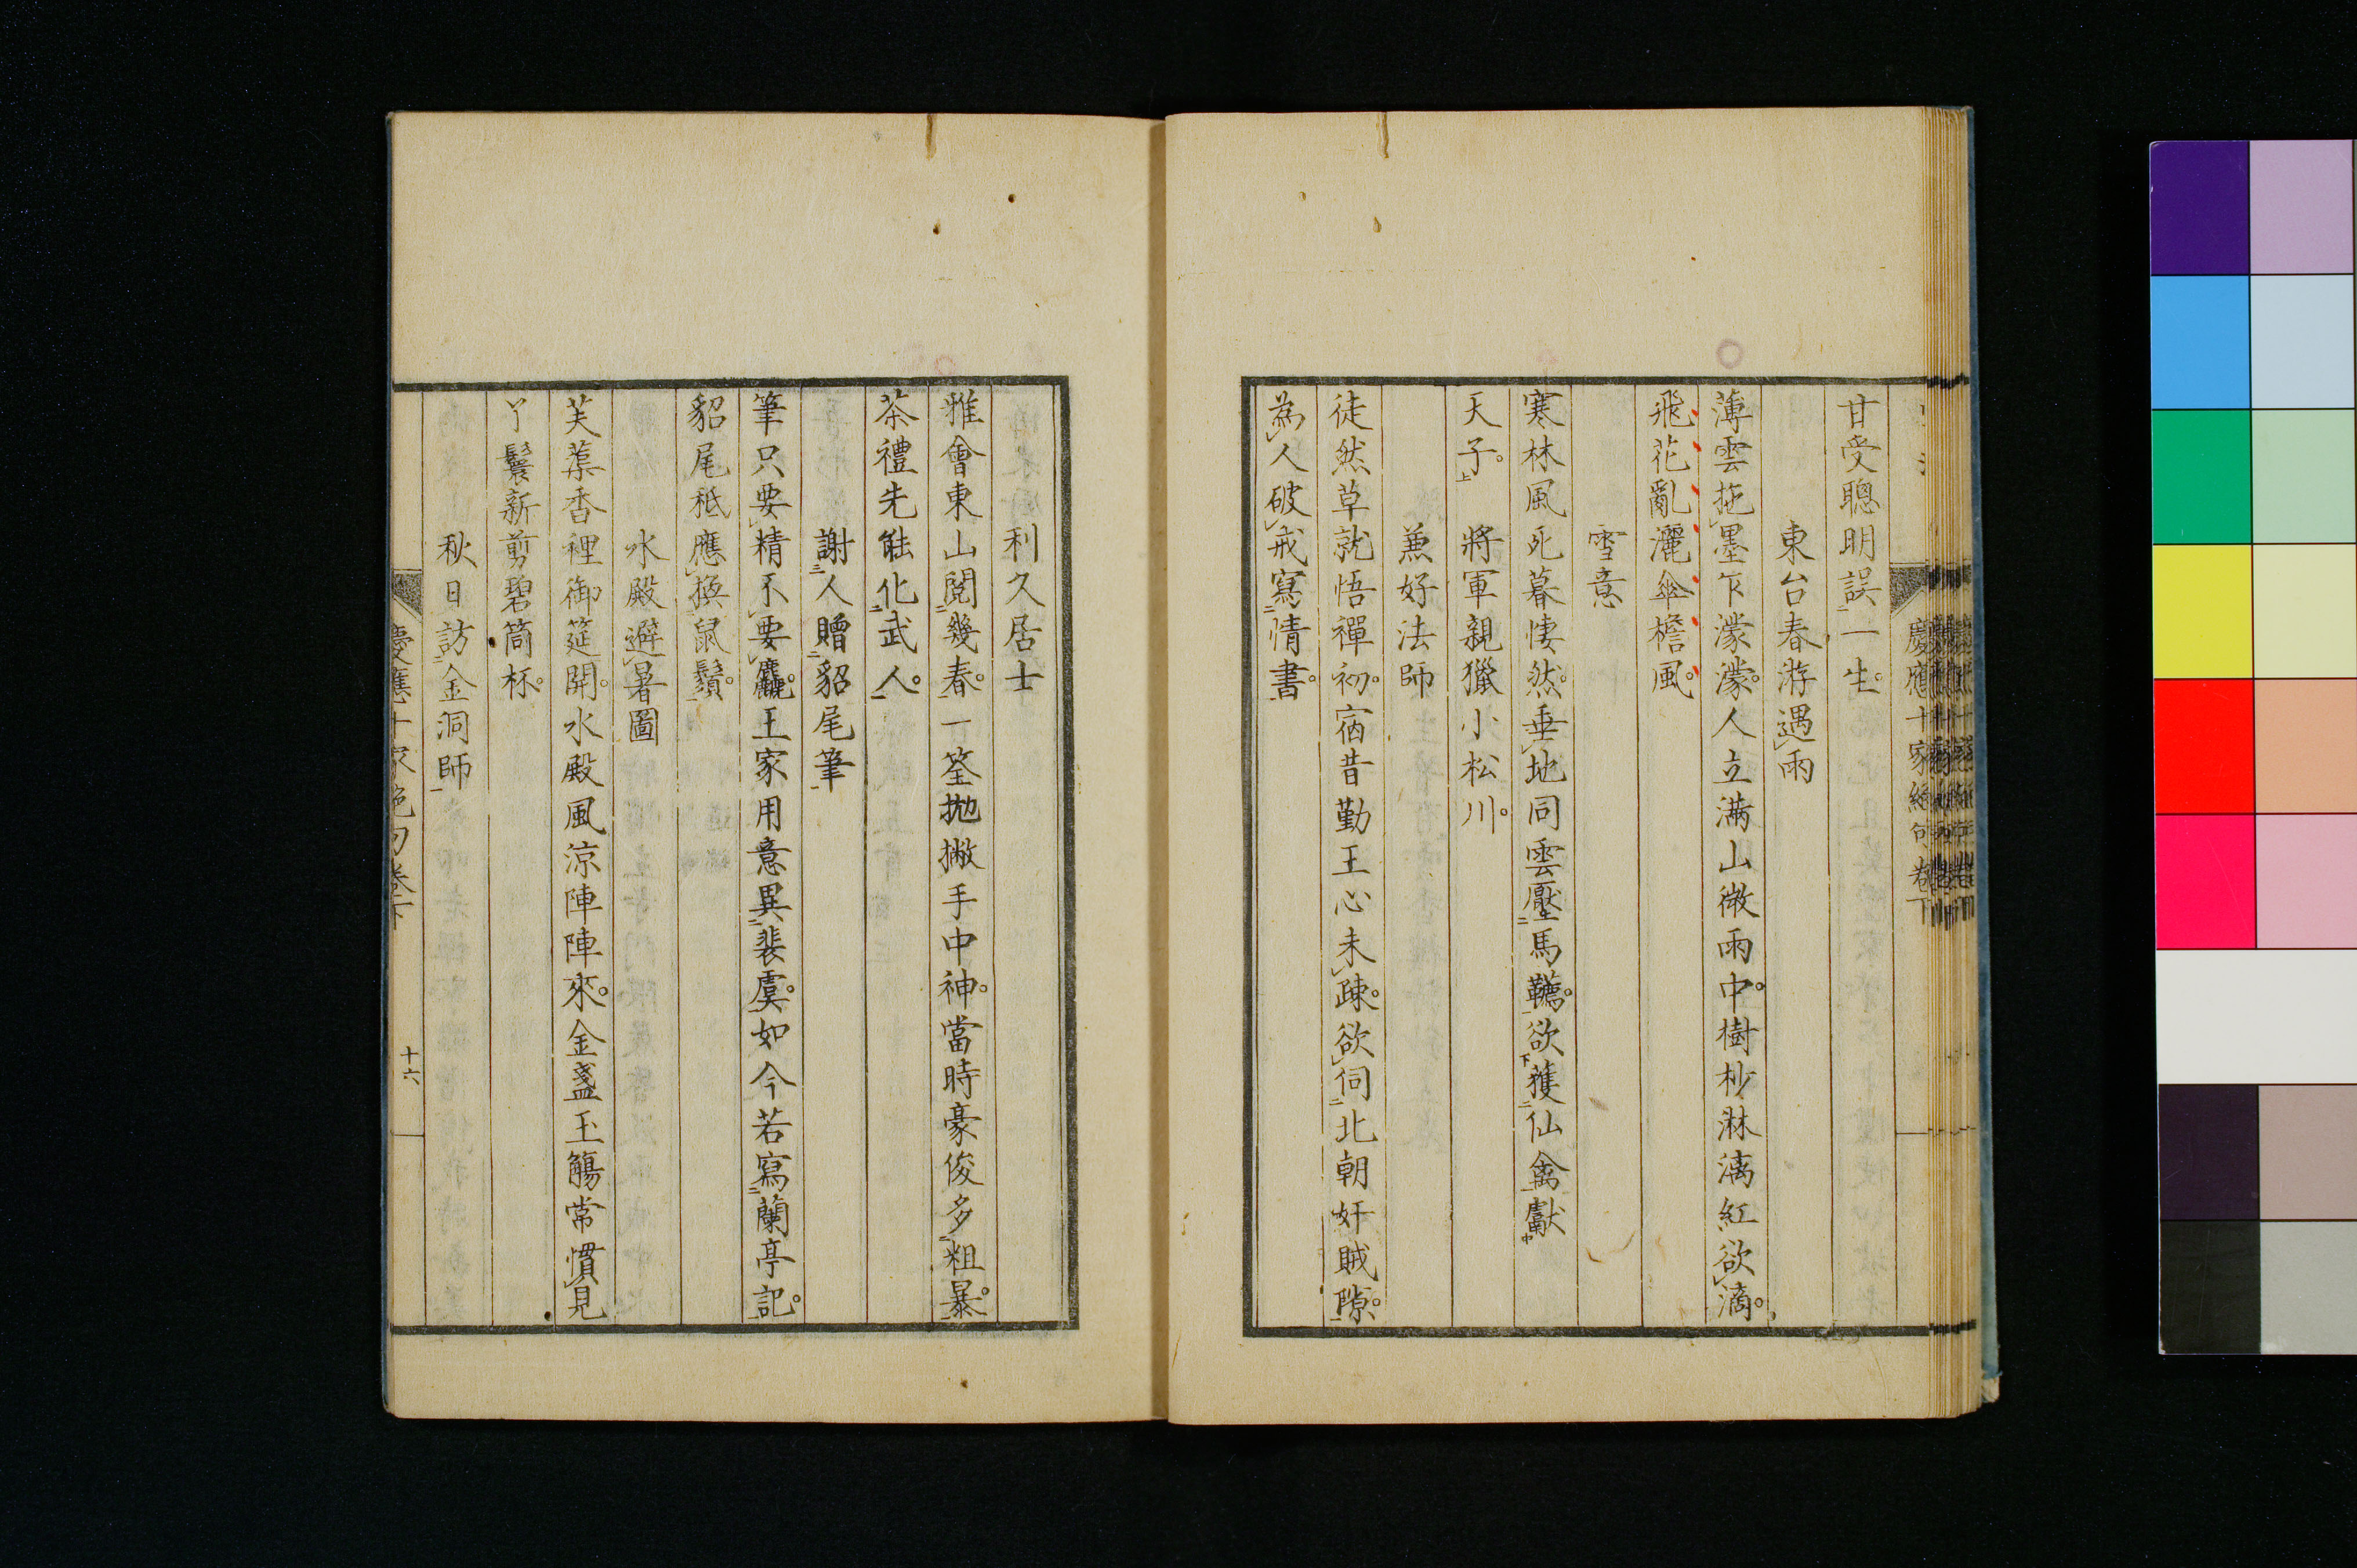 甘受聰明誤一生。
東台春游遇雨
薄雲拖墨乍濛濛。人立滿山微雨中。樹杪淋漓紅欲滴。
飛花亂灑傘檐風。
雪意
寒林風死暮悽然。垂地同雲壓馬韉。欲獲仙禽獻
天子。將軍親獵小松川。
兼好法師
徒然草就悟禪初。宿昔勤王心未疎。欲伺北朝奸賊隙。
為人破戒寫情書。
慶應十家絕句卷下
利久居士
雅會東山閱幾春。一筌拋撇手中神。當時豪俊多粗暴。
茶禮先能化武人。
謝人贈貂尾筆
筆只要精不要麤。王家用意異裴虞。如今若寫蘭亭記。
貂尾秖應換鼠鬚。
水殿避暑圖
芙蕖香裡御筵開。水殿風涼陣陣來。金盞玉觴常慣見
丫鬟新剪碧筒杯。
秋日訪金洞師
慶應十家絕句卷下
十六